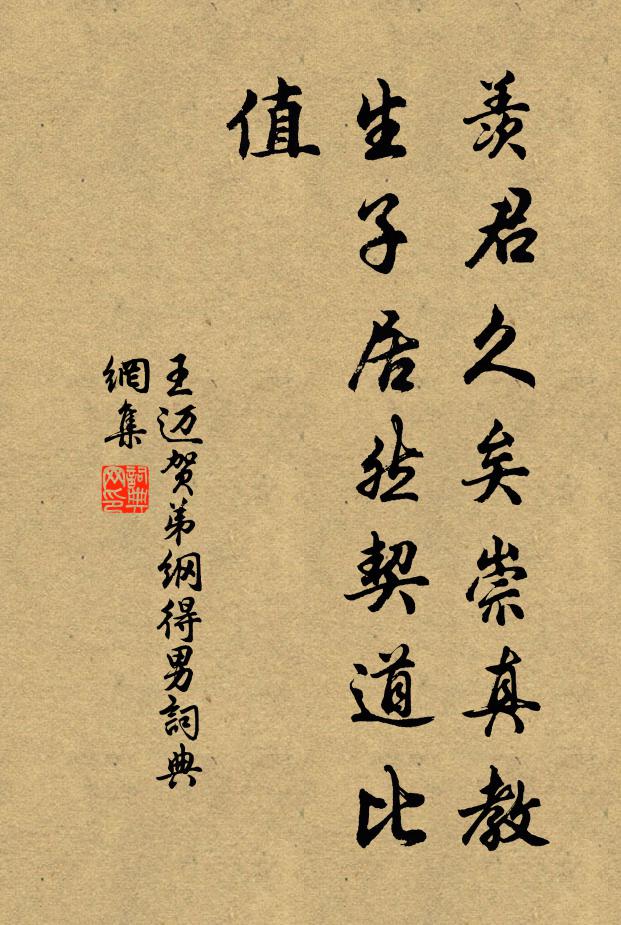 羡君久矣崇真教
生子居然契道比
值
王迈贺弟纲得男詞典
網集
詞典
网印